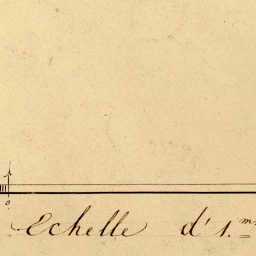 0
Echelle d'1.m